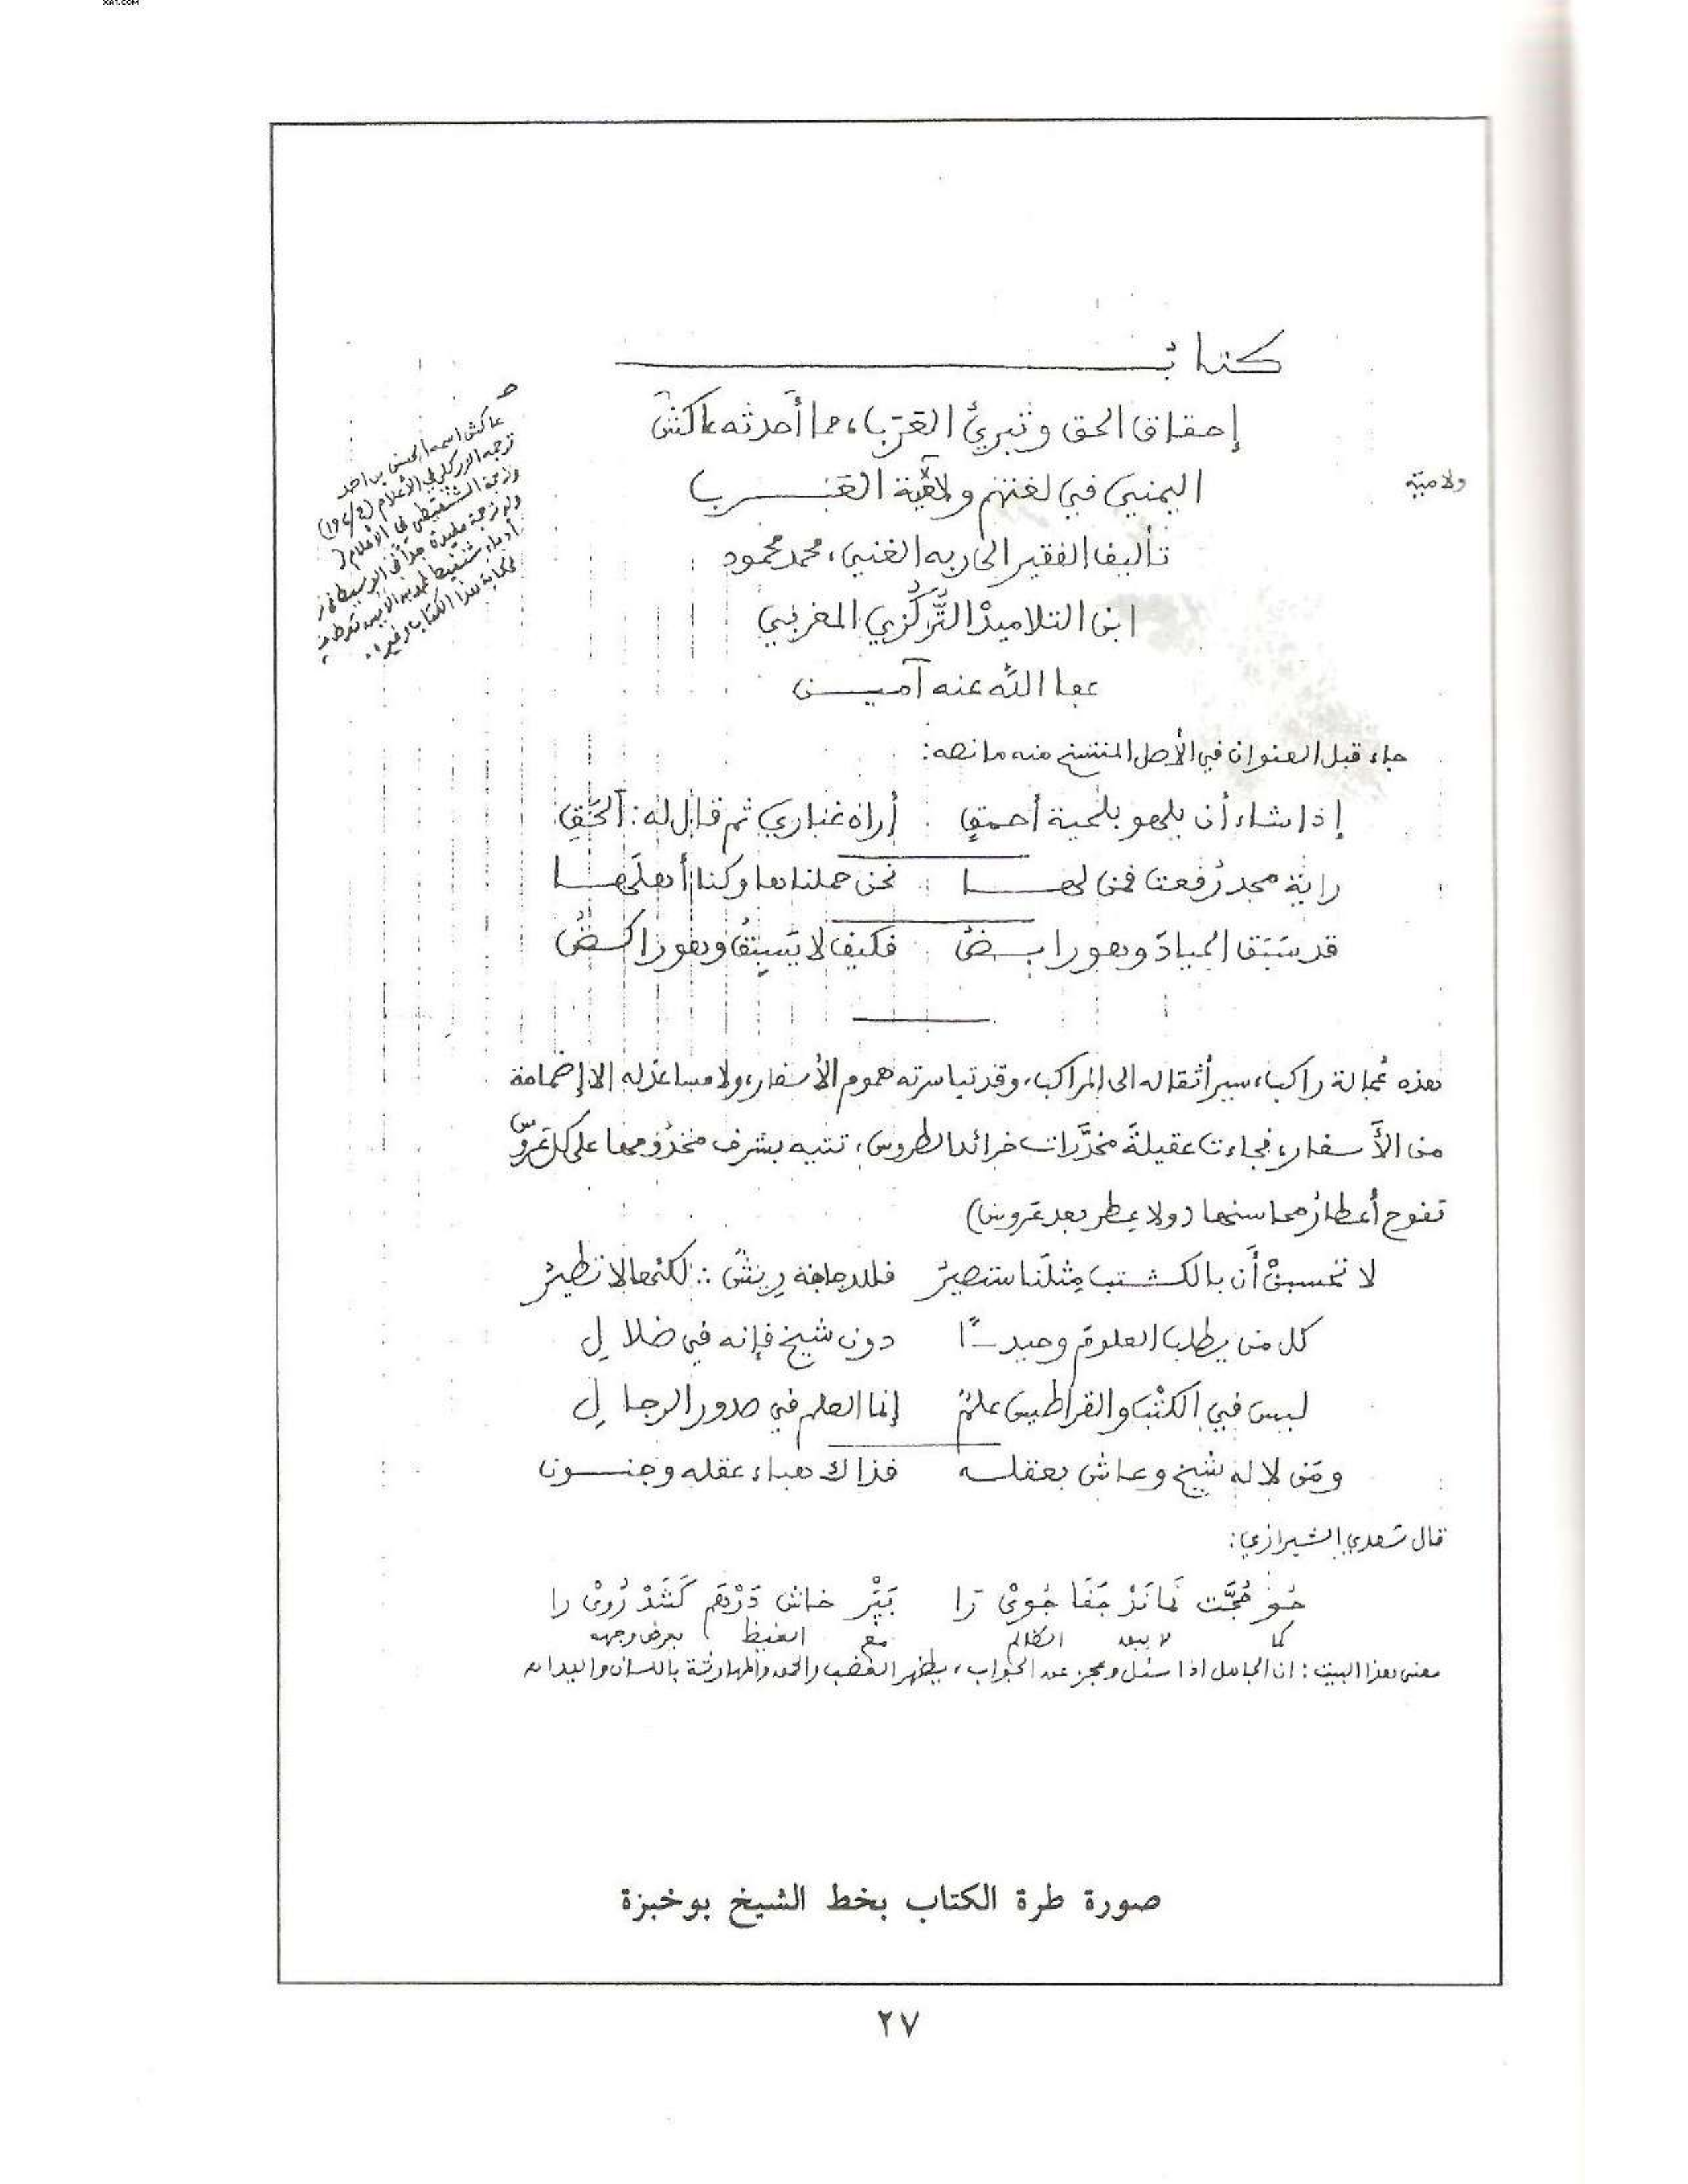 كتاب
إحقاق الحق وتبرئ العَرَب، مما أحدثه عاكش
اليمني في لغتهم ولامية العَرب
ولامية
تأليف الفقير الى ربه الغني، محمد محمود
ابن التلاميذْ التُّرْكُزي المغربي
عفا الله عنه آميـن
عاكش اسمه الحسن بن احمد
ترجمه الزركلي في الأعلام
جاء قبل العنوان في الأصل المنتسخ منه ما نصه:
إذا شاء أن يلهو بلحية أحمقٍ أراه غباري ثم قال له: آلحَقِ
راية مجد رُفعت فمن لهـا نحن حملناها وكنا أهلَهـا
قد سَبَق الجيادَ وهو رابـضُ فكيف لا يَسبِقُ وهو راكـضُ
هذه عُجالة راكب، سير أثقاله الى المراكب، وقد تياسرته هموم الأسفار، ولا مساعد له إلا إضمامة
من الأَسفار، فجاءت عقيلةَ مخدَّرات خرائد الطروس، تتيه بشرف مخدُومها على كل عَروس
تفوح أعطارُ محاسنها (ولا عِطر بعد عَروس)
لا تحسبنْ أَن بالكتب مِثلَنا ستصيرُ فللدجاجة رِيشٌ ∴ لكنها لا تطيرُ
كل من يطلب العلومَ وحيدًا دون شيخ فإنه في ضلالِ
ليس في الكتْب والقراطيس علمٌ إنما العلم في صدور الرجالِ
ومَن لا له شيخ وعاش بعقله فذاك هباء عقله وجنـون
قال سَعدي الشيرازي:
جُو حُجَّت نَمانَدْ جَفَا جُويْ رَا بَپَرْ خاش دَرْهَم كَشَدْ رُويْ را
كما لا يبقى الظالم مع الغيظ يعرض وجهه
معنى هذا البيت: ان الجاهل اذا سئل وعجز عن الجواب، يظهر الغضب والحقد والمهارشة باللسان واليدان اهـ
صورة طرة الكتاب بخط الشيخ بوخبزة
٢٧